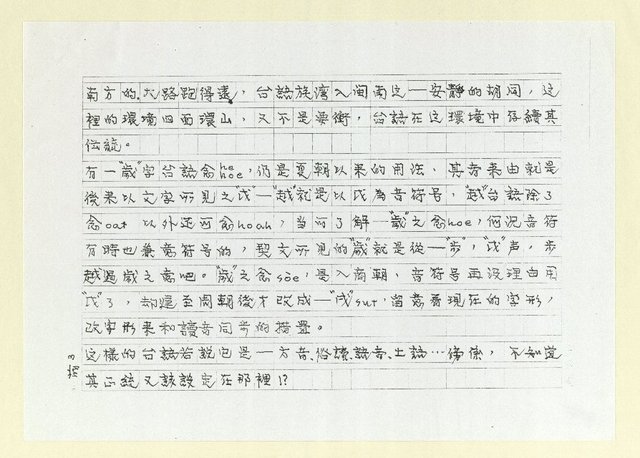 南方的大路跑得遠，台語族灣入閩南这一安靜的胡同，这
裡的環境四面環山，又不是要衝，台語在这環境中存續其
伝統。
有一"歲"字台語念he hoe，仍是夏朝以來的用法，其音來由就是
後來以文字形見之戉—"越"就是以戉為音符号，"越"台語除了
念oat 以外还可念hoah，当可了解一"歲"之念hoe，何況音符
有時也兼意符号的，契文所見的"歲"就是從一"步"，"戉"声，步
越過歲之意吧。"歲"之念sòe，是入商朝，音符号再没理由用
"戉"了，却遲至周朝後才改成一"戌"sut，当意看現在的字形，
改字形來和讀音同步的措置。
这樣的台語若説它是一方音、俗讀、訛音、土語…俤俤，不知道
其正統又該設定在那裡!?
3